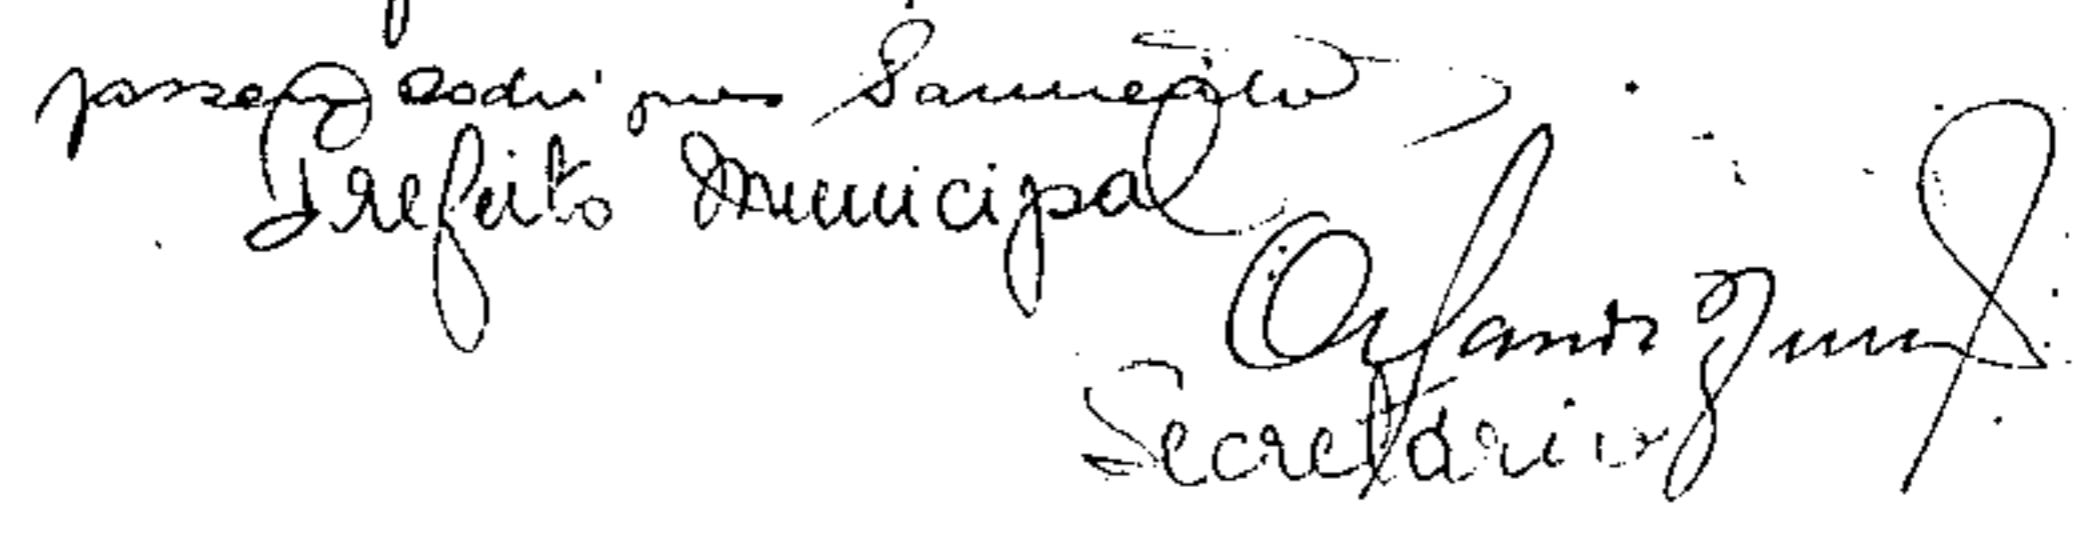 Rodrigues Sarmento
Prefeito Municipal
Orlando
Secretário